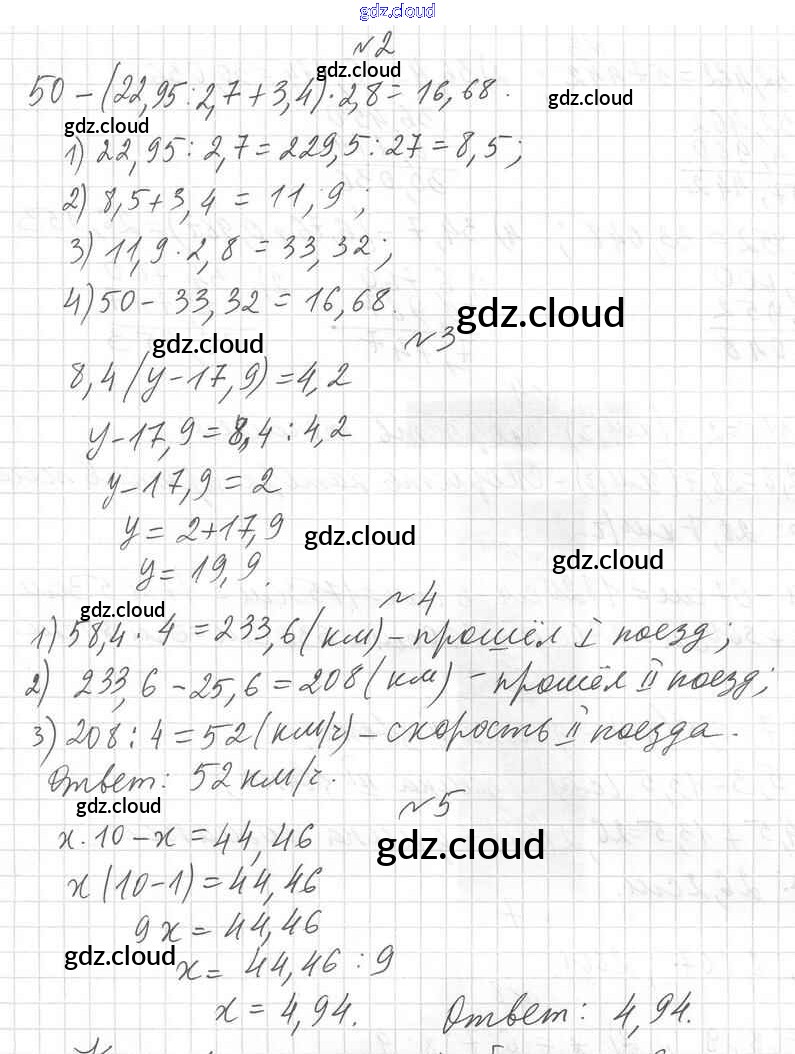 gdz.cloud
№2
gdz.cloud
50 - (22,95 : 2,7 + 3,4) · 2,8 = 16,68.
gdz.cloud
gdz.cloud
1) 22,95 : 2,7 = 229,5 : 27 = 8,5;
2) 8,5 + 3,4 = 11,9;
3) 11,9 · 2,8 = 33,32;
4) 50 - 33,32 = 16,68.
gdz.cloud
№3
gdz.cloud
8,4 (y - 17,9) = 4,2
y - 17,9 = 8,4 : 4,2
y - 17,9 = 2
y = 2 + 17,9
gdz.cloud
gdz.cloud
y = 19,9.
№4
gdz.cloud
1) 58,4 · 4 = 233,6 (км) - прошёл I поезд;
2) 233,6 - 25,6 = 208 (км) - прошёл II поезд;
3) 208 : 4 = 52 (км/ч) - скорость II поезда.
Ответ: 52 км/ч.
gdz.cloud
№5
x · 10 - x = 44,46
gdz.cloud
x (10 - 1) = 44,46
9x = 44,46
gdz.cloud
x = 44,46 : 9
x = 4,94. Ответ: 4,94.